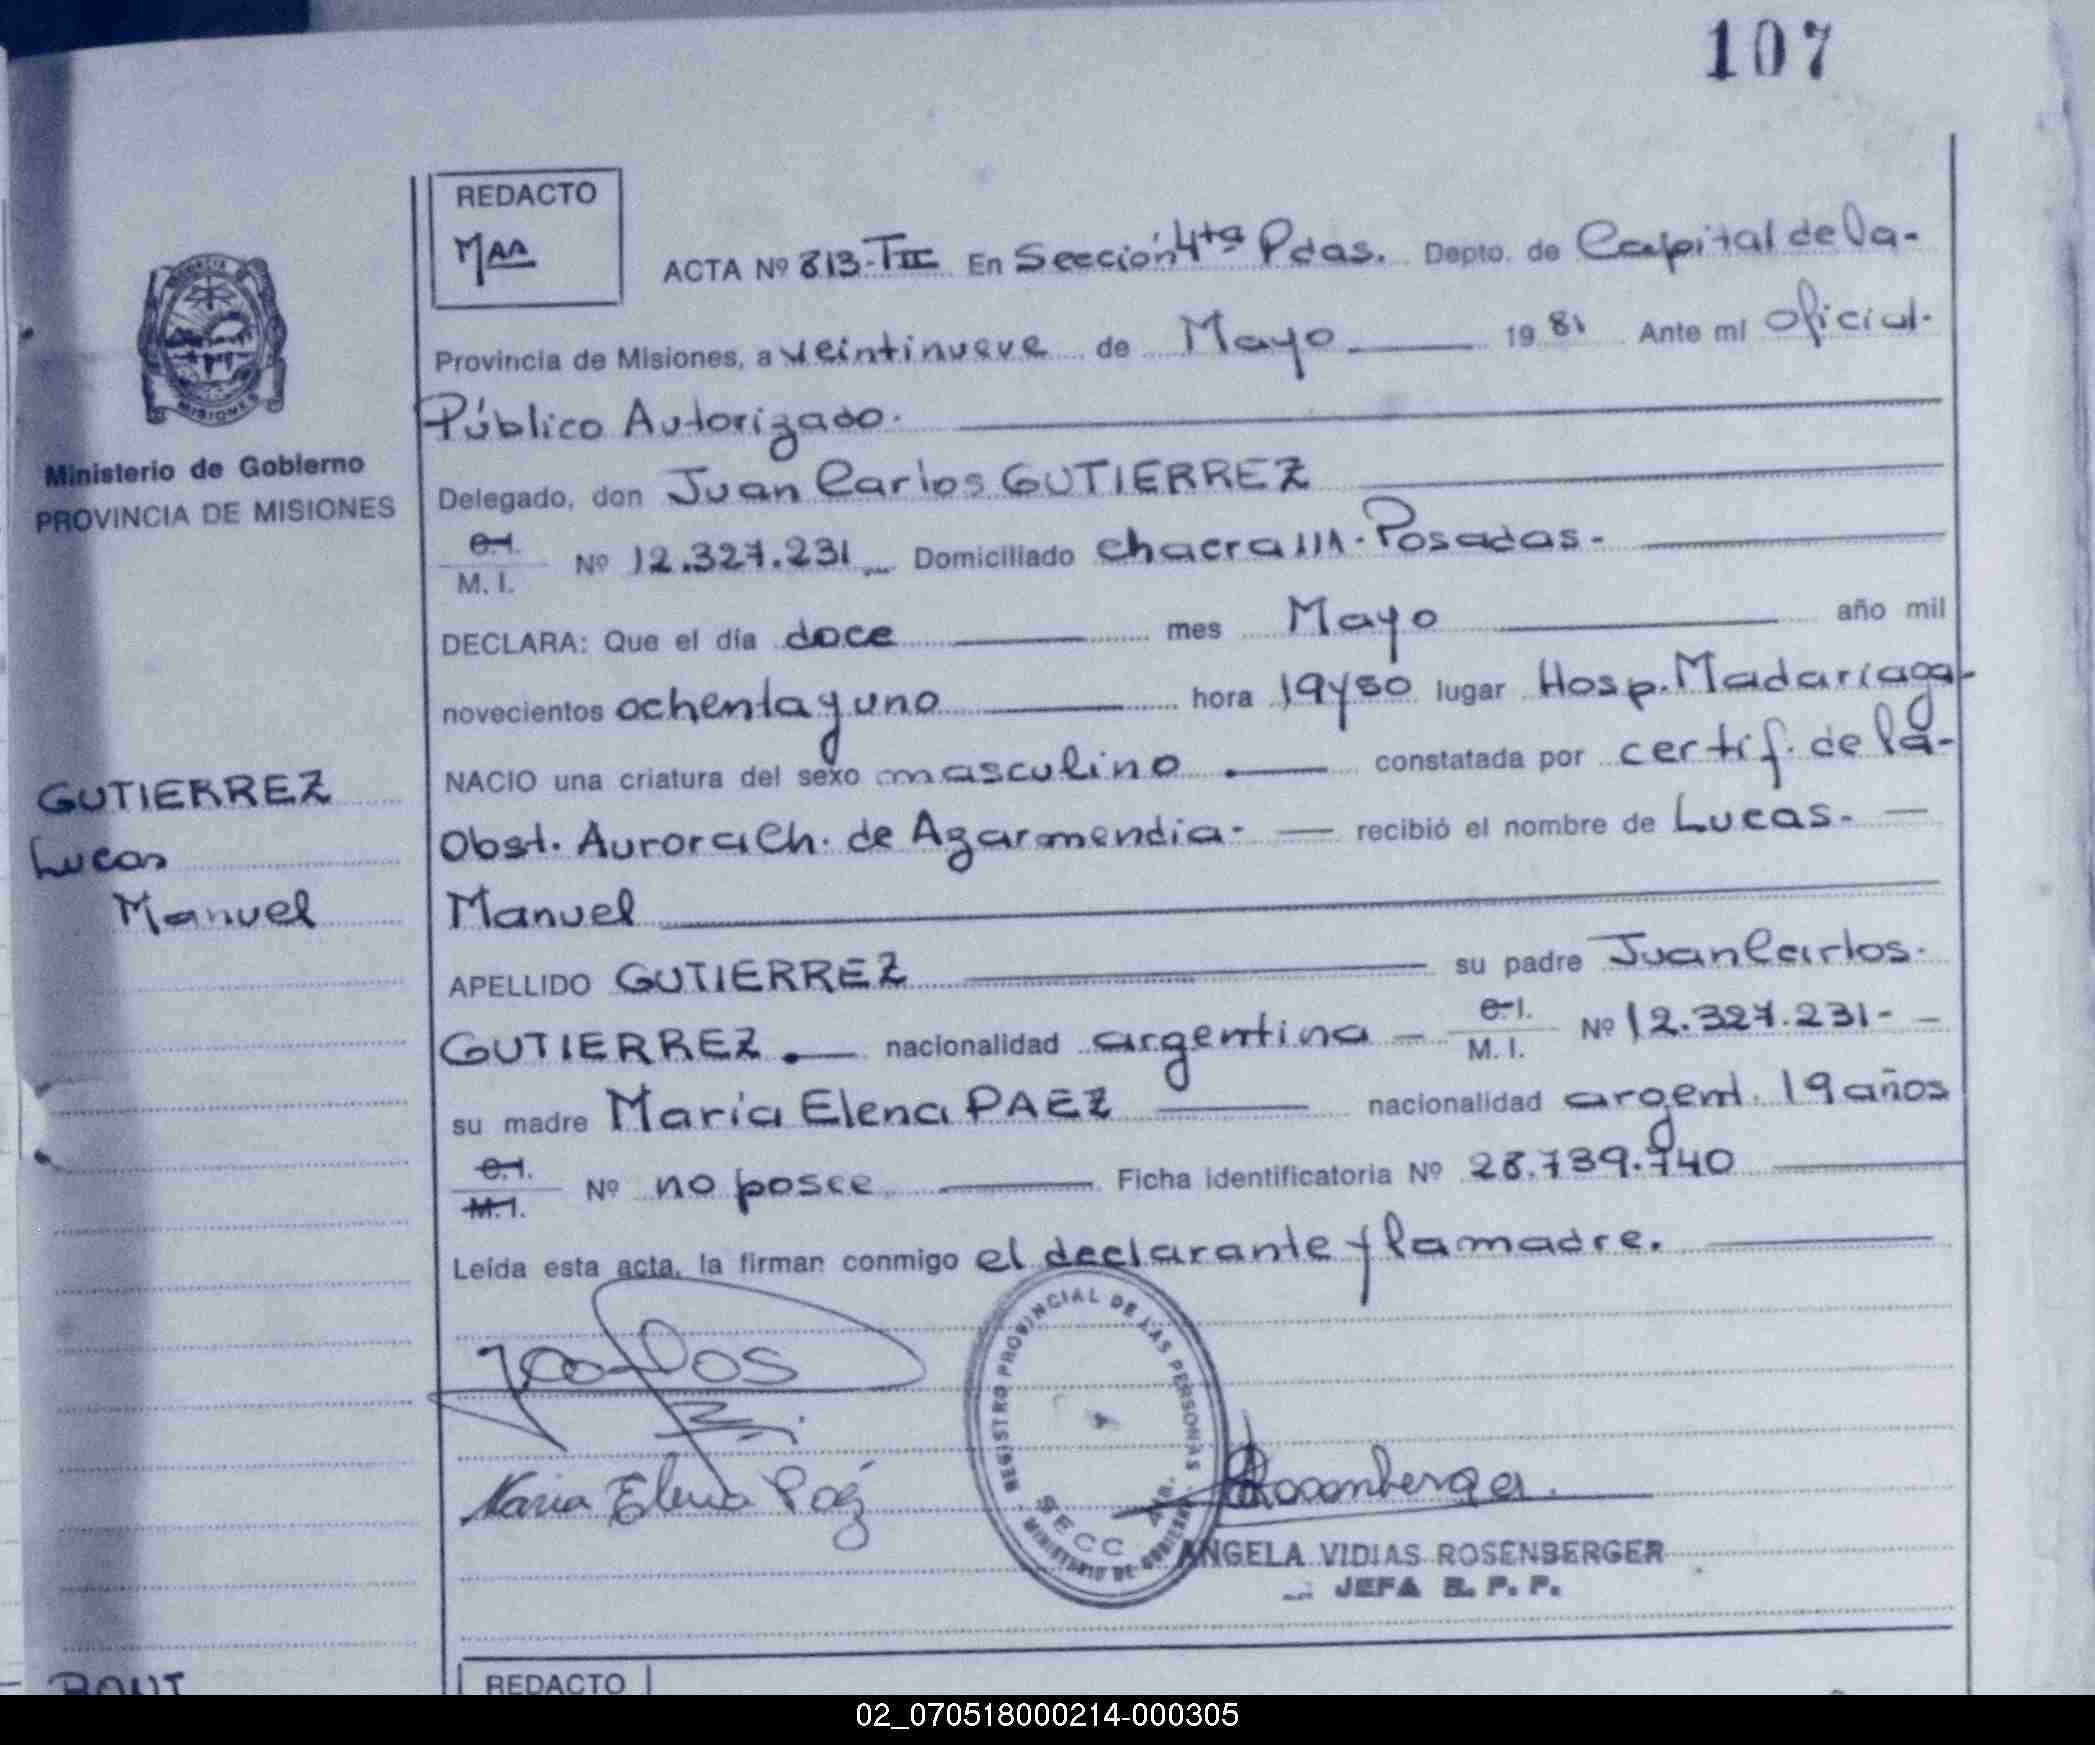 107
REDACTO
Maa
ACTA Nº 813-TIII En Sección 4ta Pdas. Depto. de Capital de la-
Provincia de Misiones, a veintinueve de Mayo 1981 Ante mí Oficial.
Público Autorizado.
Ministerio de Gobierno
PROVINCIA DE MISIONES
Delegado, don Juan Carlos GUTIERREZ
C.I.
M. I. Nº 12.327.231 Domiciliado chacra 111. Posadas-
DECLARA: Que el día doce mes Mayo año mil
novecientos ochenta y uno hora 19y50 lugar Hosp. Madariaga-
NACIO una criatura del sexo masculino. constatada por certif. de la-
Obst. Aurora Ch. de Azarmendia- recibió el nombre de Lucas.
Manuel
GUTIERREZ
Lucas
Manuel
APELLIDO GUTIERREZ su padre Juan Carlos.
GUTIERREZ. nacionalidad argentina - C.I.
M. I. Nº 12.327.231-
su madre María Elena PAEZ nacionalidad argent. 19 años
C.I.
M.I. Nº no posee Ficha identificatoria Nº 28.739.740
Leída esta acta, la firman conmigo el declarante y la madre.
Maria Elena Paéz
REGISTRO PROVINCIAL DE LAS PERSONAS
4
SECC
MINISTERIO DE GOBIERNO
Rosenberger.
ANGELA VIDIAS ROSENBERGER
JEFA R. P. P.
REDACTO
02_070518000214-000305